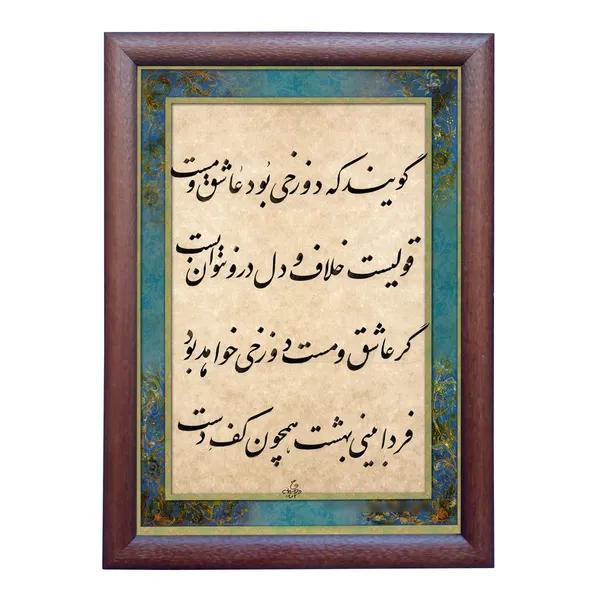 گویند که دوزخی بود عاشق و مست
قولیست خلاف و دل درو نتوان بست
گر عاشق و مست دوزخی خواهد بود
فردا بینی بهشت همچون کف دست